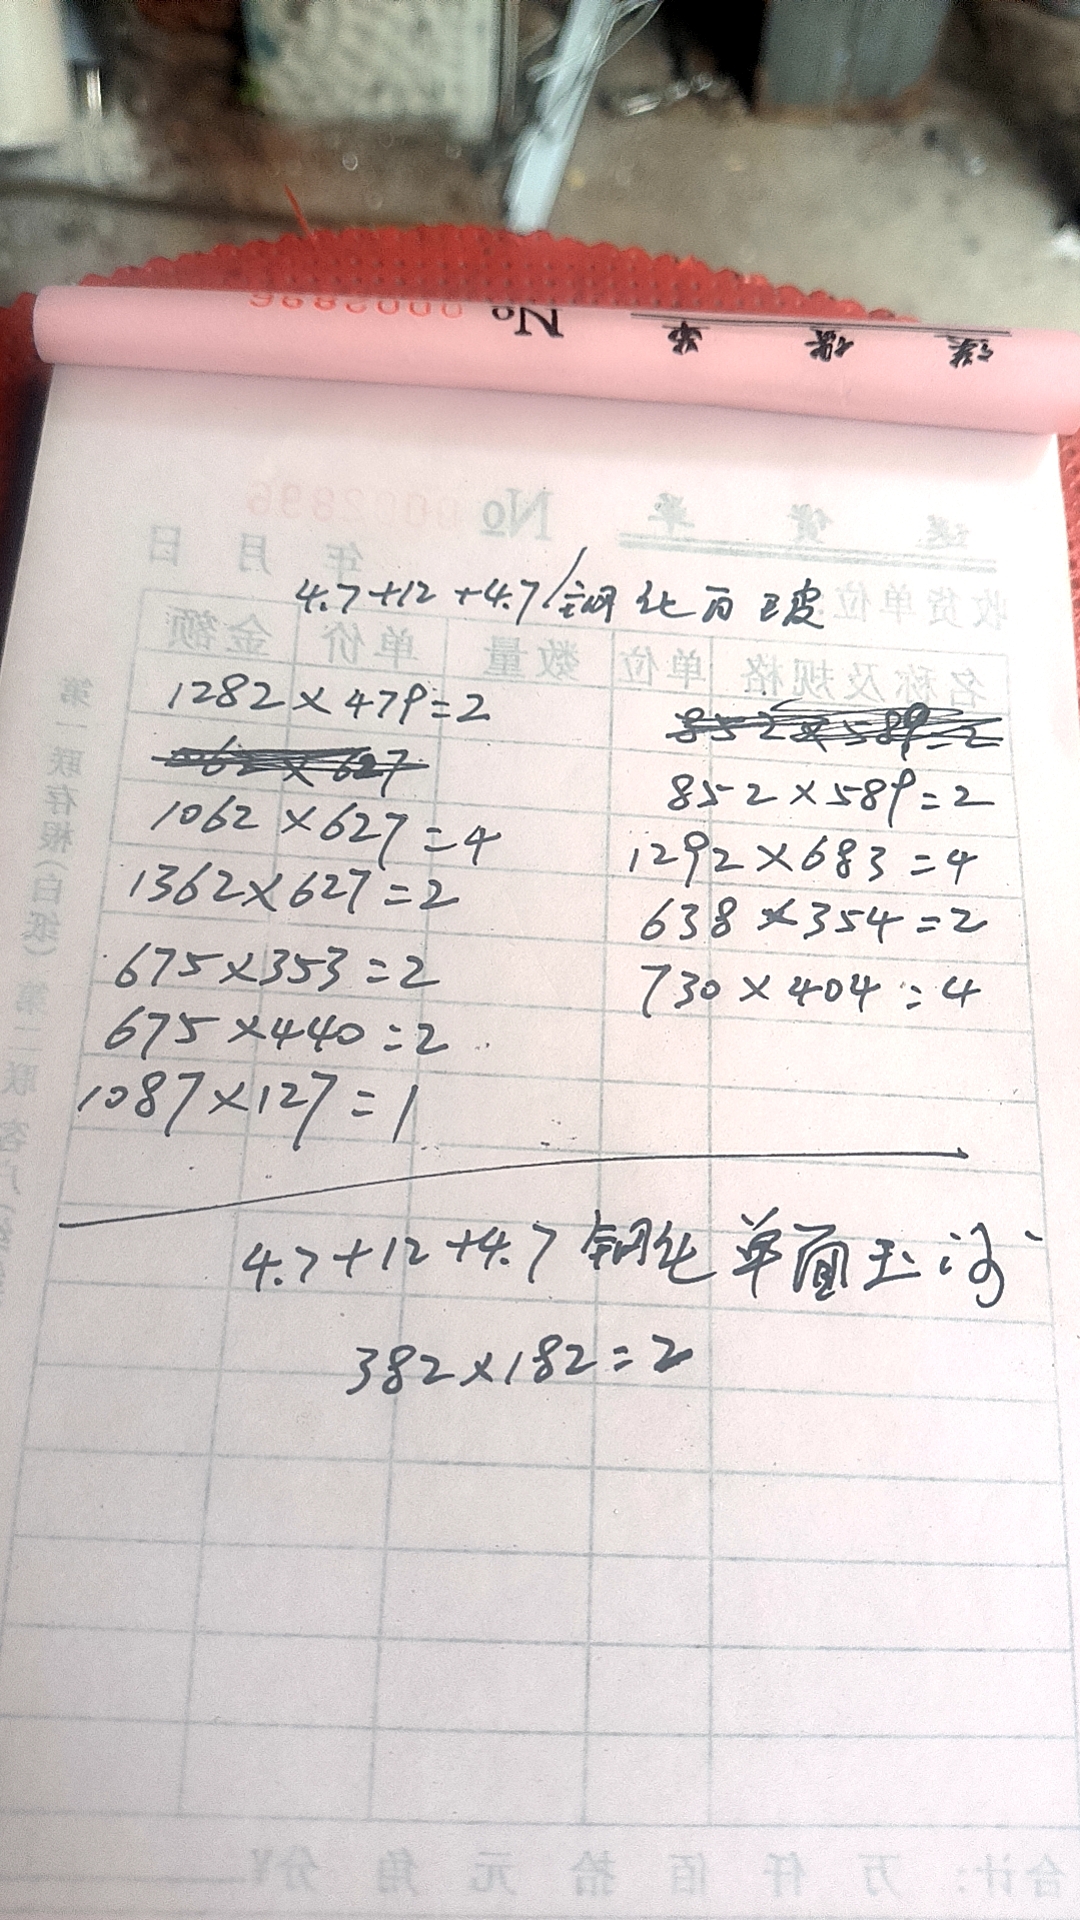 4.7+12+4.7 钢化白玻
1282×479=2
1062×627=4
1362×627=2
675×353=2
675×440=2
1087×127=1
852×589=2
852×589=2
1292×683=4
638×354=2
730×404=4
4.7+12+4.7 钢化单面玉沙
382×182=2
送货单 № 0002896
年 月 日
收货单位:
名称及规格 单位 数量 单价 金额
合计: 万 仟 佰 拾 元 角 分 ¥
第一联存根(白纸) 第二联客户